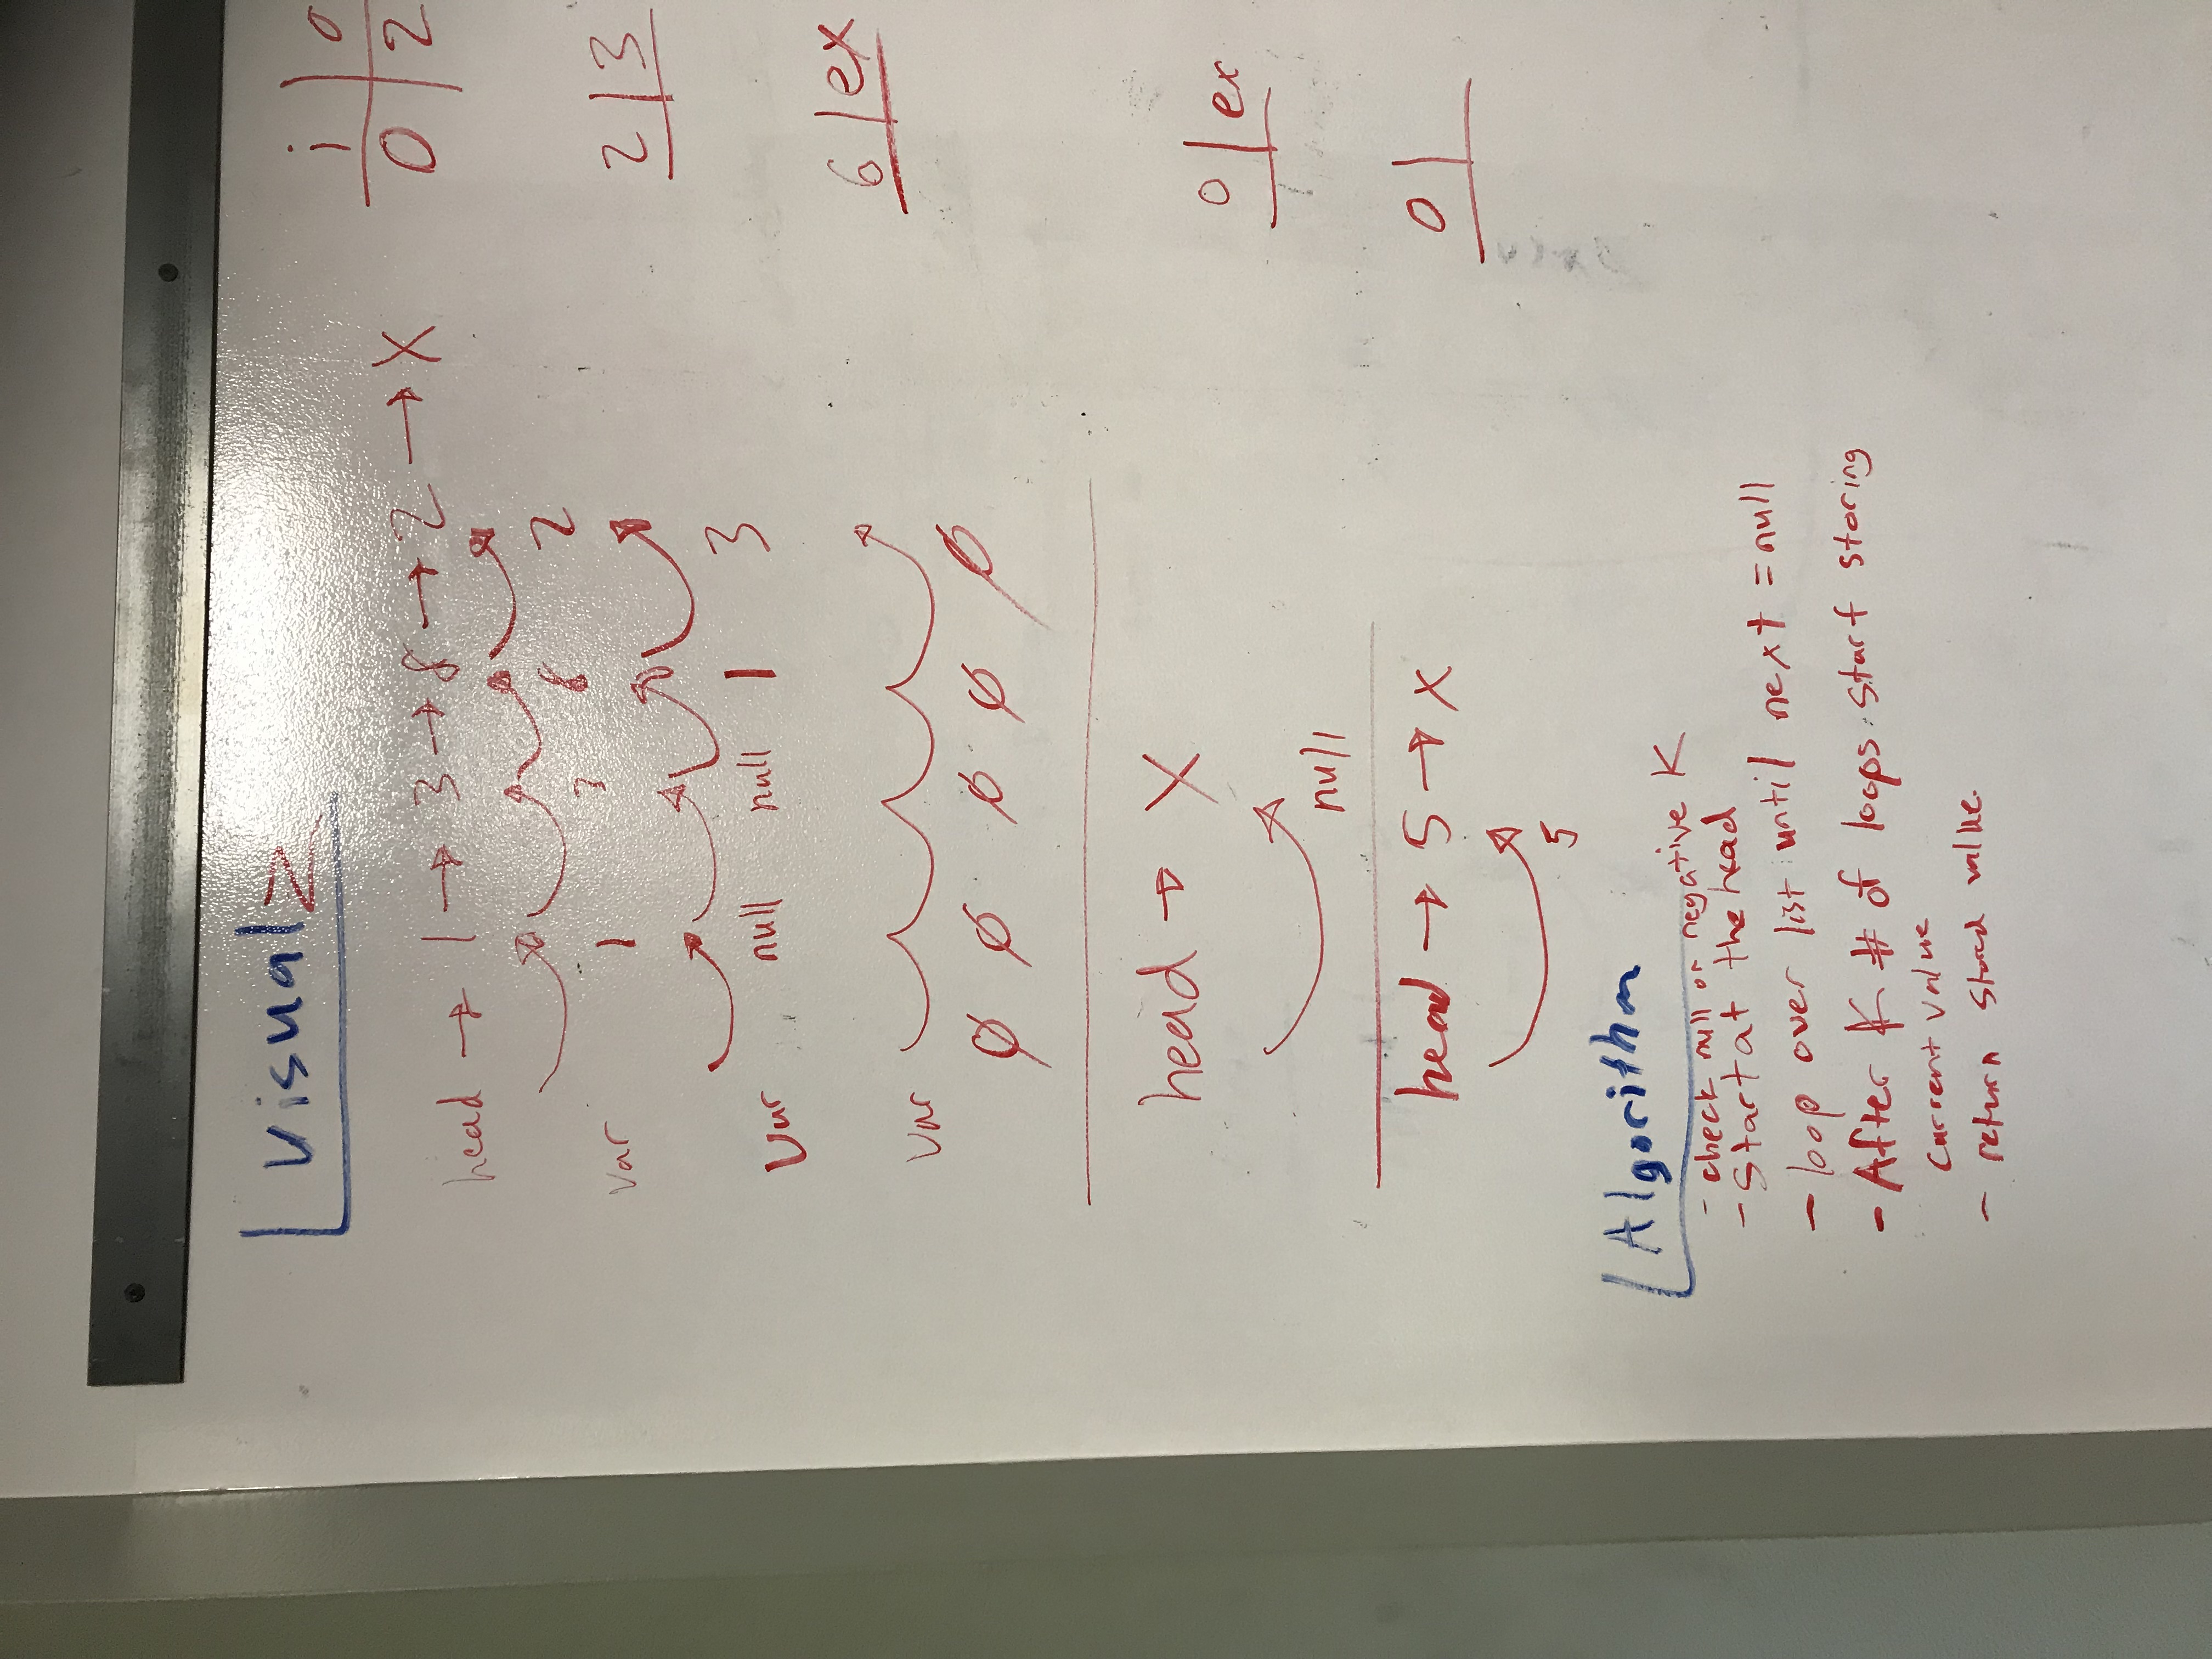 Visual
i | o
0 | 2
head → 1 → 3 → 8 → 2 → X
var 1 3 8 2
2 | 3
var null null 1 3
6 | ex
var ∅ ∅ ∅ ∅ ∅
head → X
0 | ex
null
head → 5 → X
0 |
5
Algorithm
- check null or negative K
- Start at the head
- loop over list until next = null
- After K # of loops start storing
current value
- return stored value.